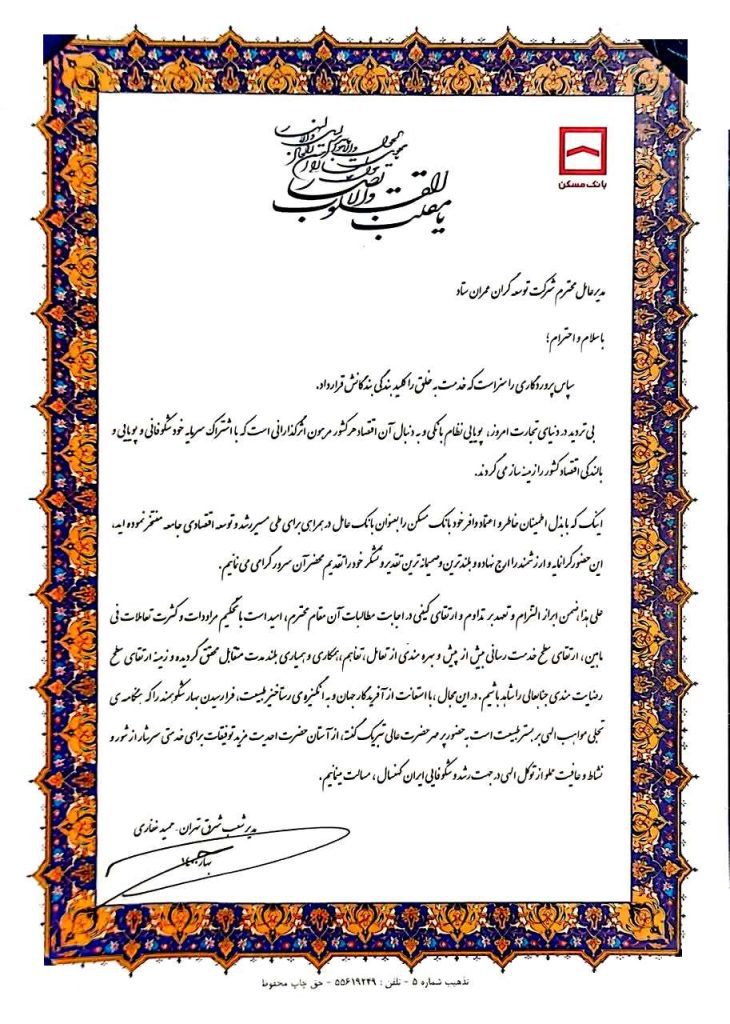 یا مقلب القلوب والابصار
بانک مسکن
مدیرعامل محترم شرکت توسعه گران عمران ستاد
با سلام و احترام؛
سپاس پروردگاری را سزاست که خدمت به خلق را کلید بندگی بندگانش قرار داد.
بی تردید در دنیای تجارت امروز، پویایی نظام بانکی و به دنبال آن اقتصاد هر کشور مرهون اثرگذارانی است که با اشتراک سرمایه خود شکوفائی و پویایی و
بالندگی اقتصاد کشور را زمینه ساز می گردند.
اینک که با بذل اطمینان خاطر و اعتماد وافر خود بانک مسکن را بعنوان بانک عامل در همراهی برای طی مسیر رشد و توسعه اقتصادی جامعه مفتخر نموده اید،
این حضور گرانمایه و ارزشمند را ارج نهاده و بلندترین و صمیمانه ترین تقدیر و تشکر خود را تقدیم محضر آن سرور گرامی می نمائیم.
علی هذا ضمن ابراز التزام و تعهد بر تداوم و ارتقای کیفی در اجابت مطالبات آن مقام محترم، امید است با تحکیم مراودات و کثرت تعاملات فی
مابین، ارتقای سطح خدمت رسانی بیش از پیش و بهره مندی از تعامل، تفاهم، همکاری و همیاری بلند مدت متقابل محقق گردیده و زمینه ارتقای سطح
رضایت مندی جنابعالی را شاهد باشیم. در این مجال، با استعانت از آفریدگار جهان و به انگیزه‌ی رستاخیز طبیعت، فرارسیدن بهار شکوهمند را که هنگامه ی
تجلی مواهب الهی بر بستر طبیعت است به حضور پر مهر حضرت عالی تبریک گفته، از آستان حضرت احدیت مزید توفیقات برای خدمتی سرشار از شور و
نشاط و عافیت مملو از توکل الهی در جهت رشد و شکوفایی ایران کهنسال، مسالت مینمایم.
مدیر شعب شرق تهران - حمید غفاری
بهار
تذهیب شماره ۵ - تلفن : ۵۵۶۱۹۲۴۹ - حق چاپ محفوظ